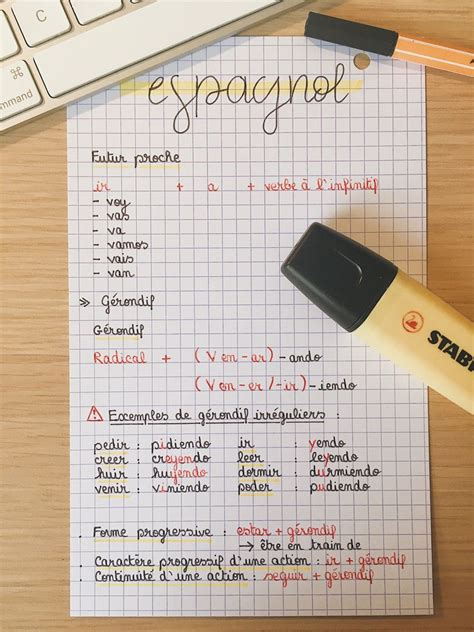 ⌘
command
espagnol
Futur proche
ir + a + verbe à l'infinitif
- voy
- vas
- va
- vamos
- vais
- van
STAB
» Gérondif
Gérondif
Radical + (V en -ar) -ando
(V en -er /-ir) -iendo
⚠ Exemples de gérondif irréguliers :
pedir : pidiendo ir : yendo
creer : creyendo leer : leyendo
huir : huyendo dormir : durmiendo
venir : viniendo poder : pudiendo
. Forme progressive : estar + gérondif
→ être en train de
. Caractère progressif d'une action : ir + gérondif
. Continuité d'une action : seguir + gérondif